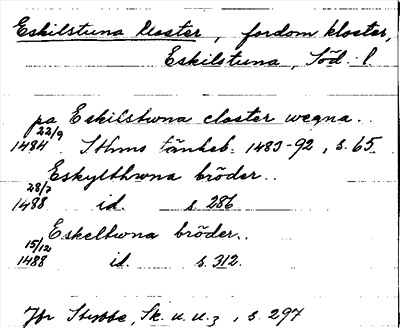 Eskilstuna kloster, fordom kloster,
Eskilstuna, Söd. l.
pa Eskilstwna closter wegna..
22/9
1484 Sthms tänkeb. 1483-92, s. 65.
Eskylthwna bröder..
28/7
1488 id. s. 286
Eskeltwna bröder..
15/12
1488 id. s. 312.
Jfr Styffe, Sk. u. u. 3, s. 297